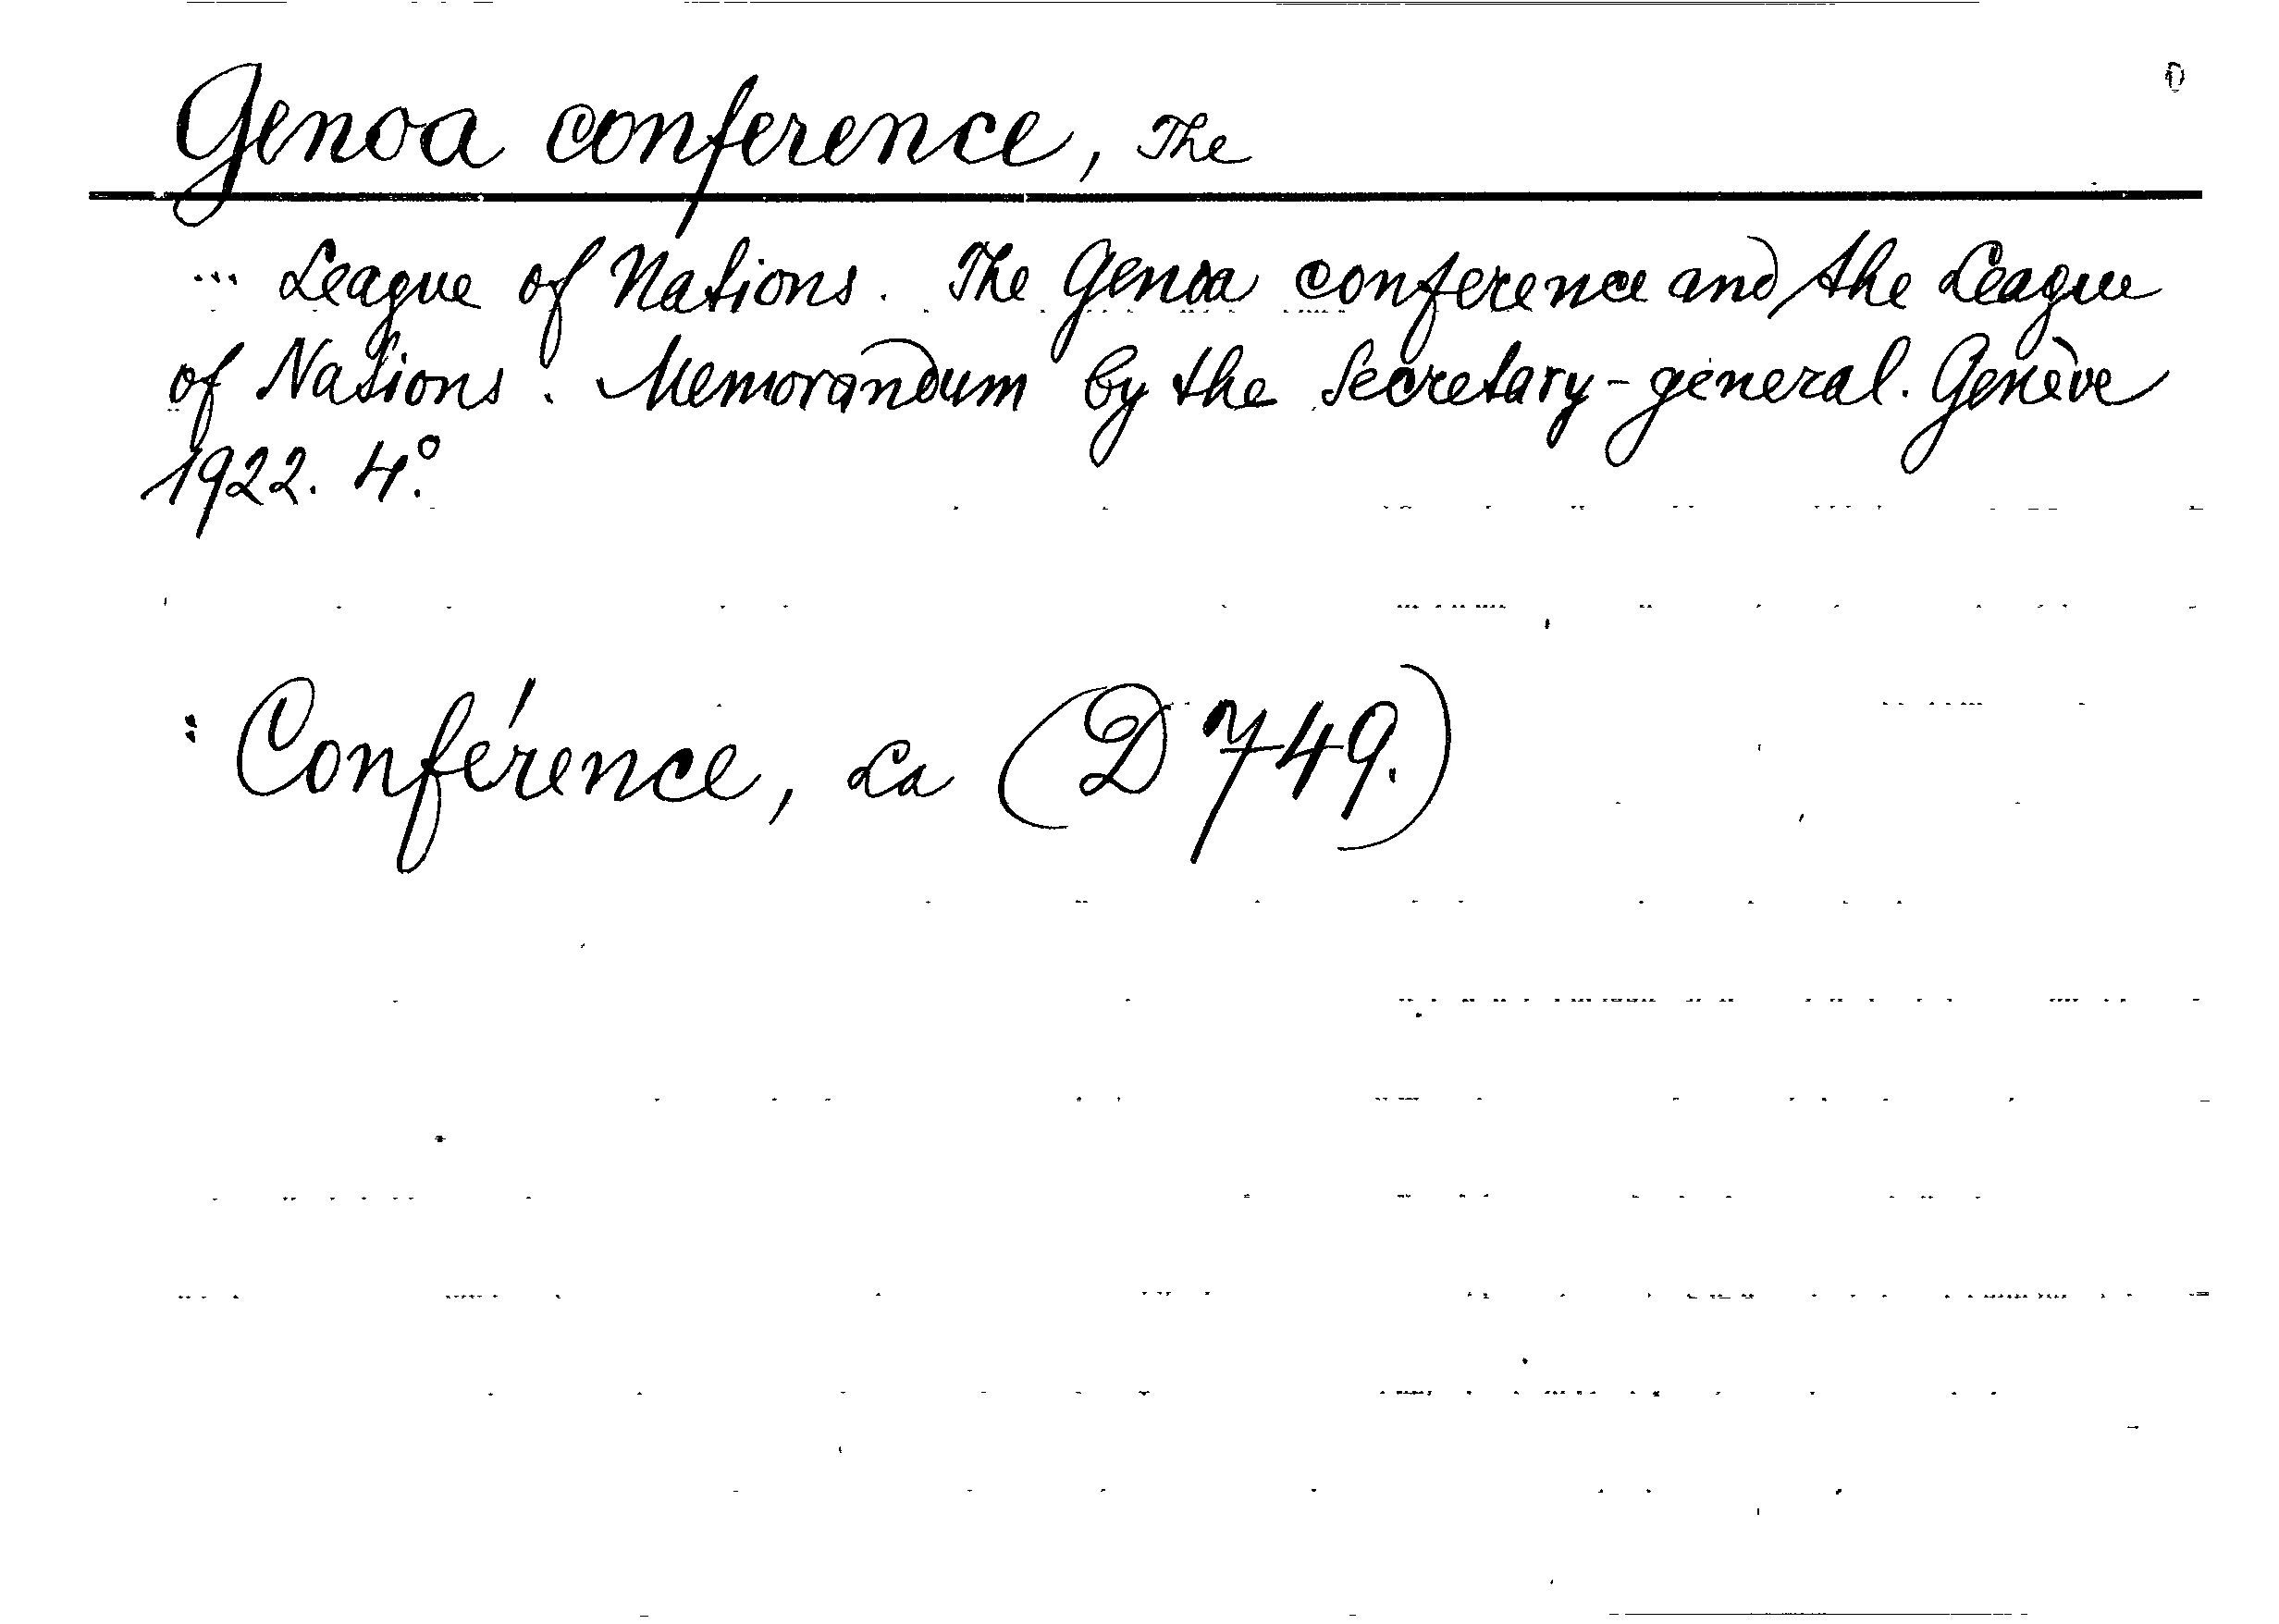 Genoa conference, The
... League of Nations. The Genoa conference and the League
of Nations. Memorandum by the Secretary-general. Genève
1922. 4°.
: Conférence, La (D 749.)